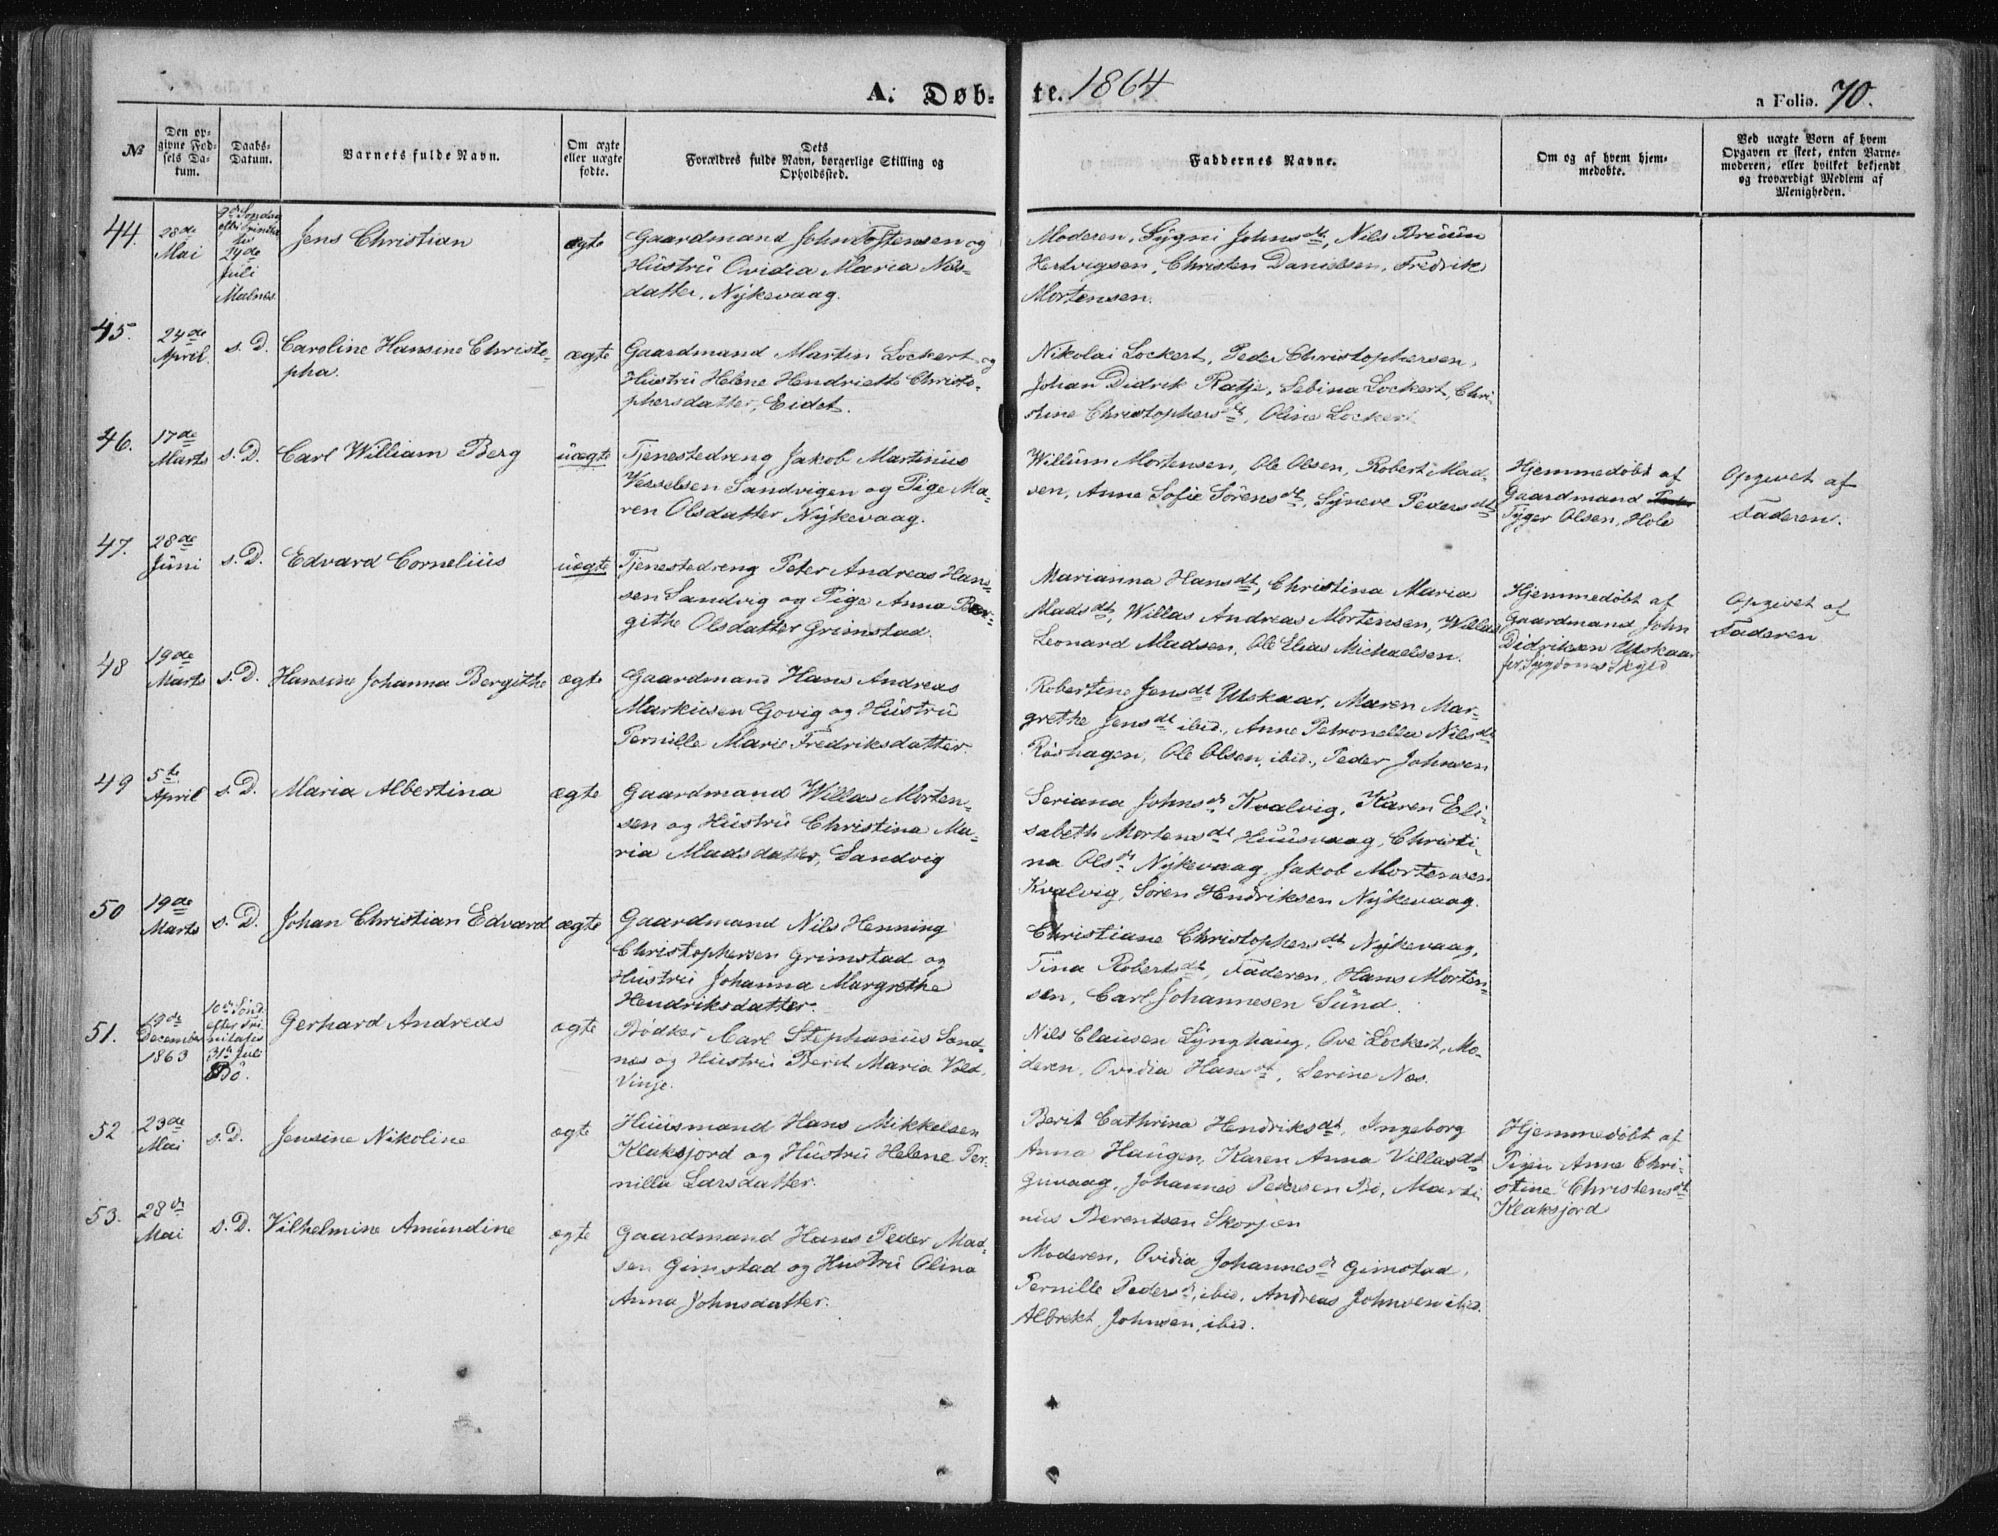 A. Døb- te. 1864
a Folio. 70.
№
Den op-
givne Fød-
sels Da-
tum.
Daabs-
Datum.
Barnets fulde Navn.
Om ægte
eller uægte
fødte.
Dets
Forældres fulde Navn, borgerlige Stilling og
Opholdssted.
Faddernes Navne.
Om og af hvem hjem-
medøbt.
Ved uægte Børn af hvem
Opgaven er skeet, enten Barne-
moderen, eller hvilket bekjendt
og troværdigt Medlem af
Menigheden.
44.
28de
Mai
9de Søndag
efter Trinita
tis
24de
Juli
Malnes
Jens Christian
ægte
Gaardmand John Tostensen og
Hustru Ovidia Maria Nils-
datter, Nykevaag.
Moderen, Sygni Johnsdt, Nils Bruun
Hertvigsen, Christen Danielsen, Fredrik
Mortensen.
45.
24de
April
s. D.
Caroline Hansine Christo-
pha.
ægte
Gaardmand Martin Lockert og
Hustru Helene Hendriette Christo-
phersdatter, Eidet.
Nikolai Lockert, Peder Christophersen,
Johan Didrik Ratje, Sebina Lockert, Chri-
stine Christophersdt, Oline Lockert
46.
17de
Marts
s. D.
Carl William Berg
uægte
Tjenestedreng Jakob Martinus
Wesselsen Sandvigen og Pige Ma-
ren Olsdatter Nykevaag.
Willum Mortensen, Ole Olsen, Robert Mad-
sen, Anne Sofie Sørensdt, Syneve Pedersdt
Hjemmedøbt af
Gaardmand
Tyger Olsen, Hole
Opgivet af
Faderen.
47.
28de
Juni
s. D.
Edvard Cornelius
uægte
Tjenestedreng Peter Andreas Han-
sen Sandvig og Pige Anna Ber-
githe Olsdatter Grimstad.
Marianna Hansdt, Christina Maria
Madsdt, Willas Andreas Mortensen, Willas
Leonard Madsen, Ole Elias Michaelsen.
Hjemmedøbt af
Gaardmand John
Didriksen Utskaar
for Sygdoms Skyld
Opgivet af
Faderen
48
19de
Marts
s. D.
Hansine Johanna Bergithe
ægte
Gaardmand Hans Andreas
Markusen Govig og Hustru
Pernille Marie Fredriksdatter.
Robertine Jensdt Utskaar, Maren Mar-
grethe Jensdt ibid., Anne Petronella Nilsdt
Røshagen, Ole Olsen, ibid., Peder Johnsen
49
5te
April
s. D.
Maria Albertina
ægte
Gaardmand Willas Morten-
sen og Hustru Christina Ma-
ria Madsdatter, Sandvig
Seriana Johnsdt Kvalvig, Karen Eli-
sabeth Mortensdt Huusvaag, Christi-
na Olsdt Nykevaag, Jakob Mortensen
Kvalvig, Søren Hendriksen Nykevaag.
50
19de
Marts
s. D.
Johan Christian Edvard
ægte
Gaardmand Nils Henning
Christophersen Grimstad og
Hustru Johanna Margrethe
Hendriksdatter.
Christiane Christophersdt Nykevaag,
Tina Robertsdt, Faderen, Hans Morten-
sen, Carl Johannesen Sund.
51.
19de
December
1863
10de Sønd.
efter Tri
nitatis
31te Juli
Bø.
Gerhard Andreas
ægte
Bødker Carl Stephanus Sand-
nes og Hustru Berit Maria Vold-
Vinje.
Nils Clausen Lynghaug, Ove Lockert, Mo-
deren, Ovidia Hansdt, Serine Næs.
52
23de
Mai
s. D.
Jensine Nikoline
ægte
Huusmand Hans Mikkelsen
Klaksjord og Hustru Helene Per-
nilla Larsdatter.
Berit Cathrina Hendriksdt, Ingeborg
Anna Haugen, Karen Anna Villasdt
Guvaag, Johannes Pedersen Bø, Marti
nus Berentsen Skorpen
Hjemmedøbt af
Pigen Anne Chri-
stine Christensdt
Klaksjord
53.
28de
Mai
s. D.
Vilhelmine Amundine
ægte
Gaardmand Hans Peder Mad-
sen Gimstad og Hustru Olina
Anna Johnsdatter.
Moderen, Ovidia Johannesdt Gimstad,
Pernille Pedersdt, ibid. Andreas Johnsen ibid.
Albrekt Johnsen, ibid.